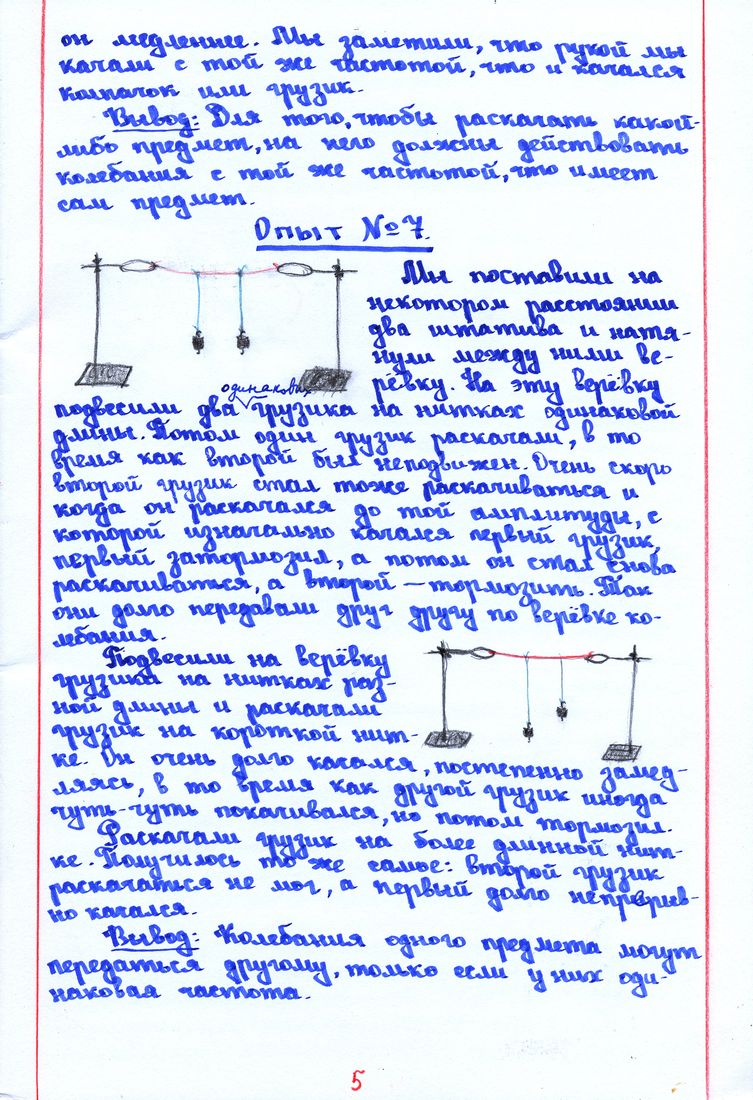 он медленнее. Мы заметили, что рукой мы
качали с той же частотой, что и качался
колпачок или грузик.
Вывод: Для того, чтобы раскачать какой-
либо предмет, на него должны действовать
колебания с той же частотой, что имеет
сам предмет.
Опыт №7.
Мы поставили на
некотором расстоянии
два штатива и натя-
нули между ними ве-
рёвку. На эту верёвку
одинаковых
подвесили два грузика на нитках одинаковой
длины. Потом один грузик раскачали, в то
время как второй был неподвижен. Очень скоро
второй грузик стал тоже раскачиваться и
когда он раскачался до той амплитуды, с
которой изначально качался первый грузик,
первый затормозил, а потом он стал снова
раскачиваться, а второй – тормозить. Так
они долго передавали друг другу по верёвке ко-
лебания.
Подвесили на верёвку
грузики на нитках раз-
ной длины и раскачали
грузик на короткой нит-
ке. Он очень долго качался, постепенно замед-
ляясь, в то время как другой грузик иногда
чуть-чуть покачивался, но потом тормозил.
Раскачали грузик на более длинной нит-
ке. Получилось то же самое: второй грузик
раскачаться не мог, а первый долго непрерыв-
но качался.
Вывод: Колебания одного предмета могут
передаться другому, только если у них оди-
наковая частота.
5